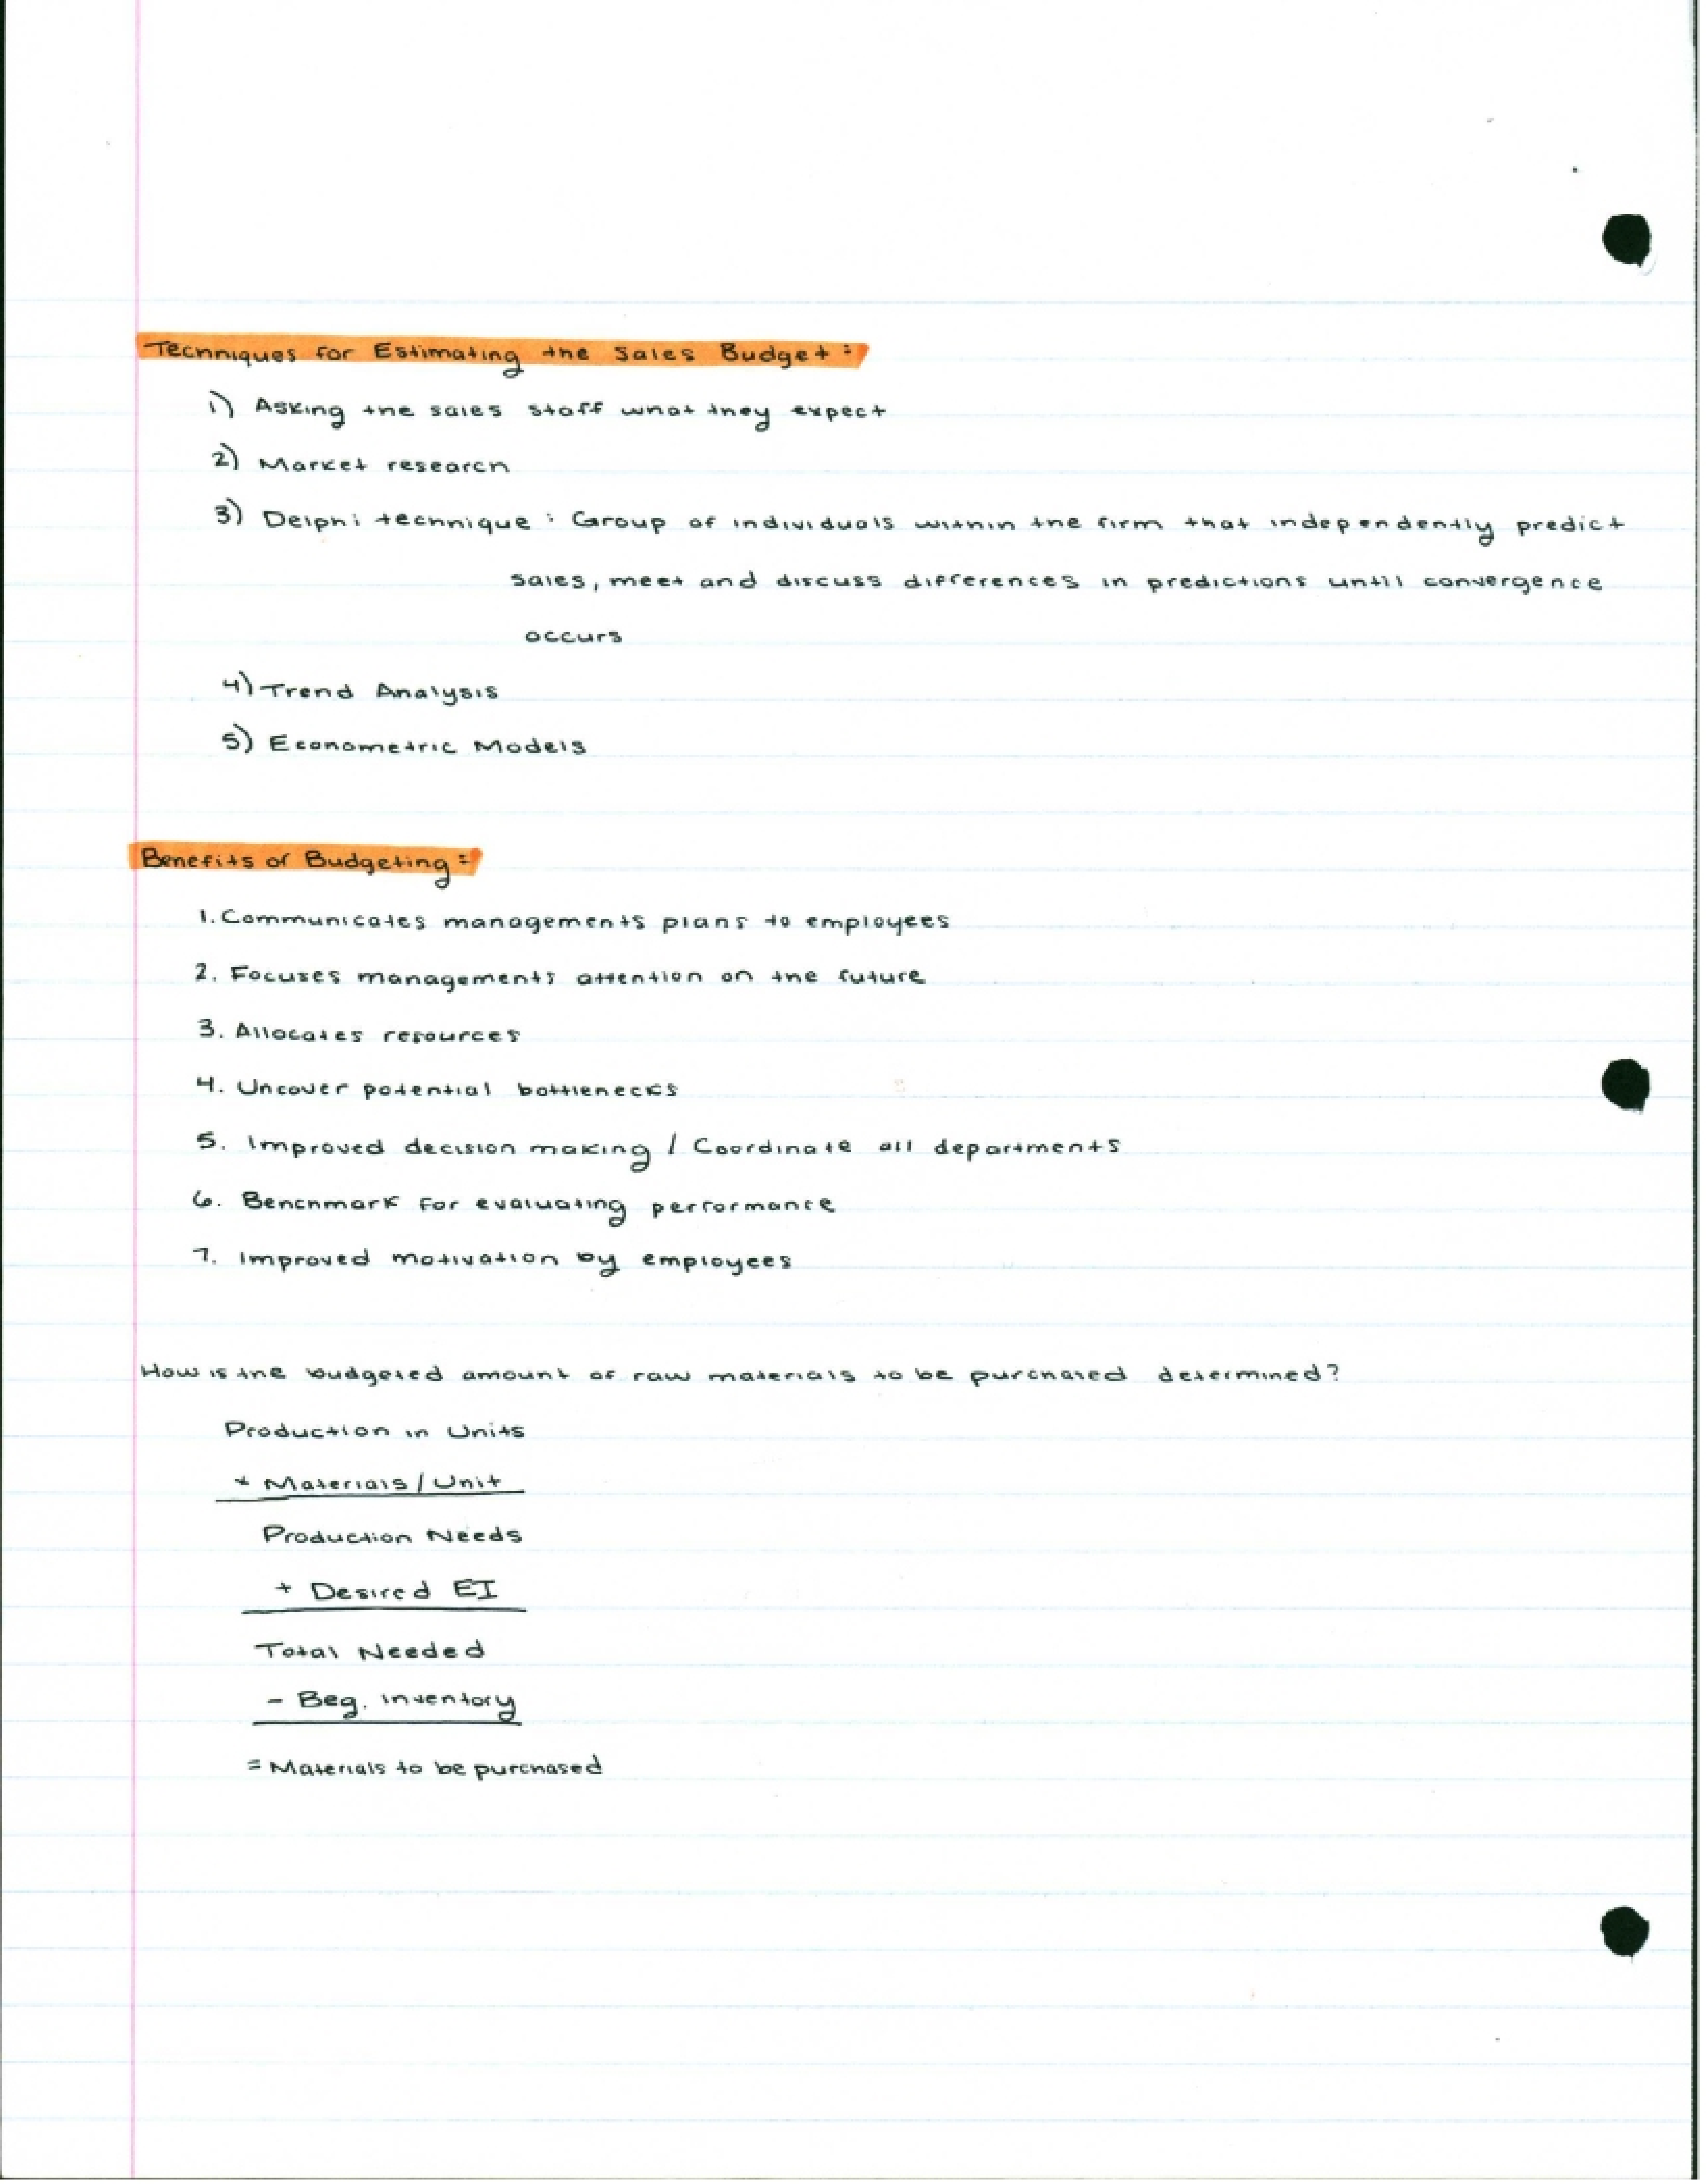 Techniques for Estimating the Sales Budget:
1) Asking the sales staff what they expect
2) Market research
3) Delphi technique: Group of individuals within the firm that independently predict
sales, meet and discuss differences in predictions until convergence
occurs
4) Trend Analysis
5) Econometric Models
Benefits of Budgeting:
1. Communicates managements plans to employees
2. Focuses managements attention on the future
3. Allocates resources
4. Uncover potential bottlenecks
5. Improved decision making / Coordinate all departments
6. Benchmark for evaluating performance
7. Improved motivation by employees
How is the budgeted amount of raw materials to be purchased determined?
Production in Units
* Materials/Unit
Production Needs
+ Desired EI
Total Needed
- Beg. inventory
= Materials to be purchased